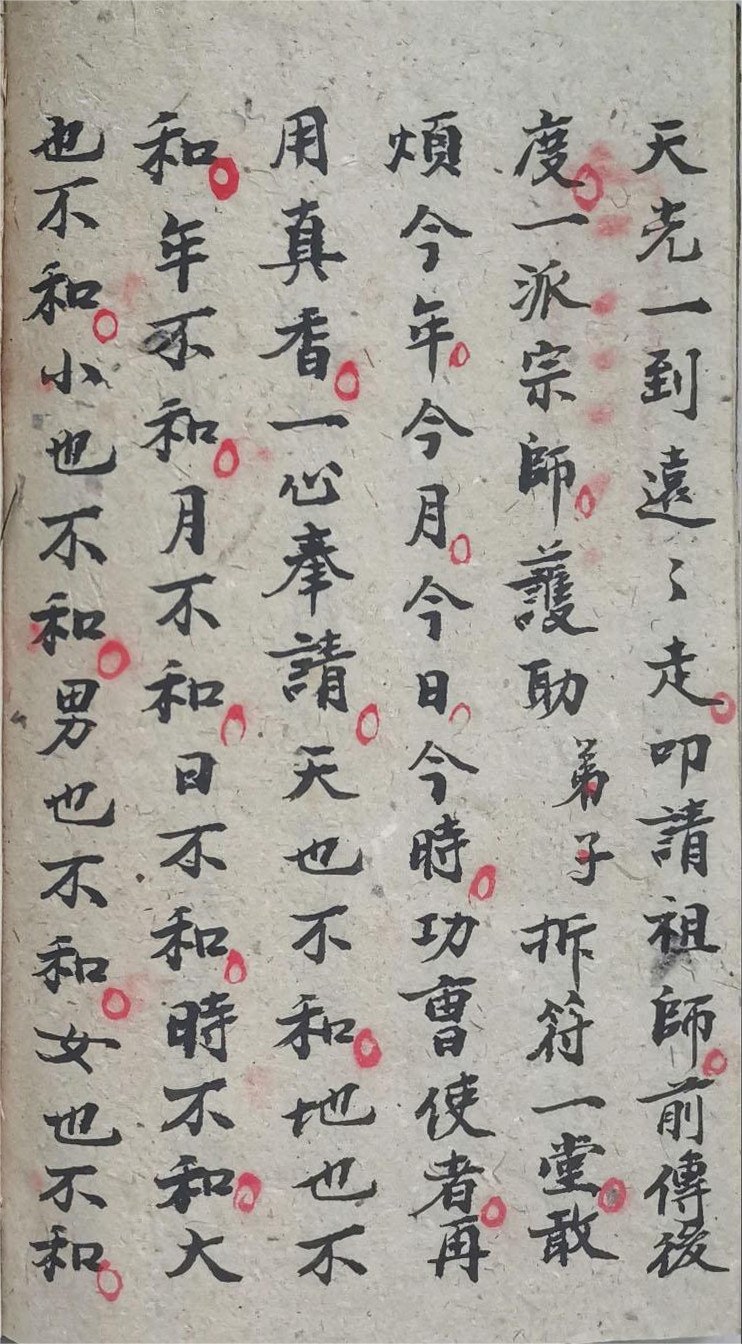 天光一到遠〻走叩請祖師前傳後
度一派宗師護助弟子拆符一堂敢
煩今年今月今日今時功曹使者再
用真香一心奉請天也不和地也不
和年不和月不和日不和時不和大
也不和小也不和男也不和女也不和